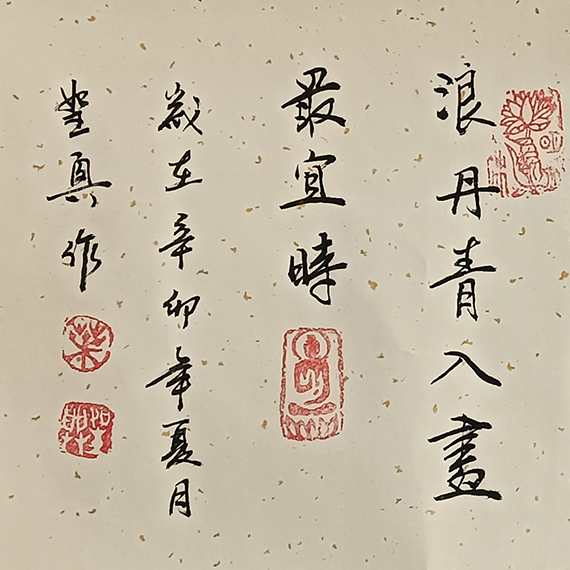 浪丹青入畫
最宜時
歲在辛卯年夏月
聖真作